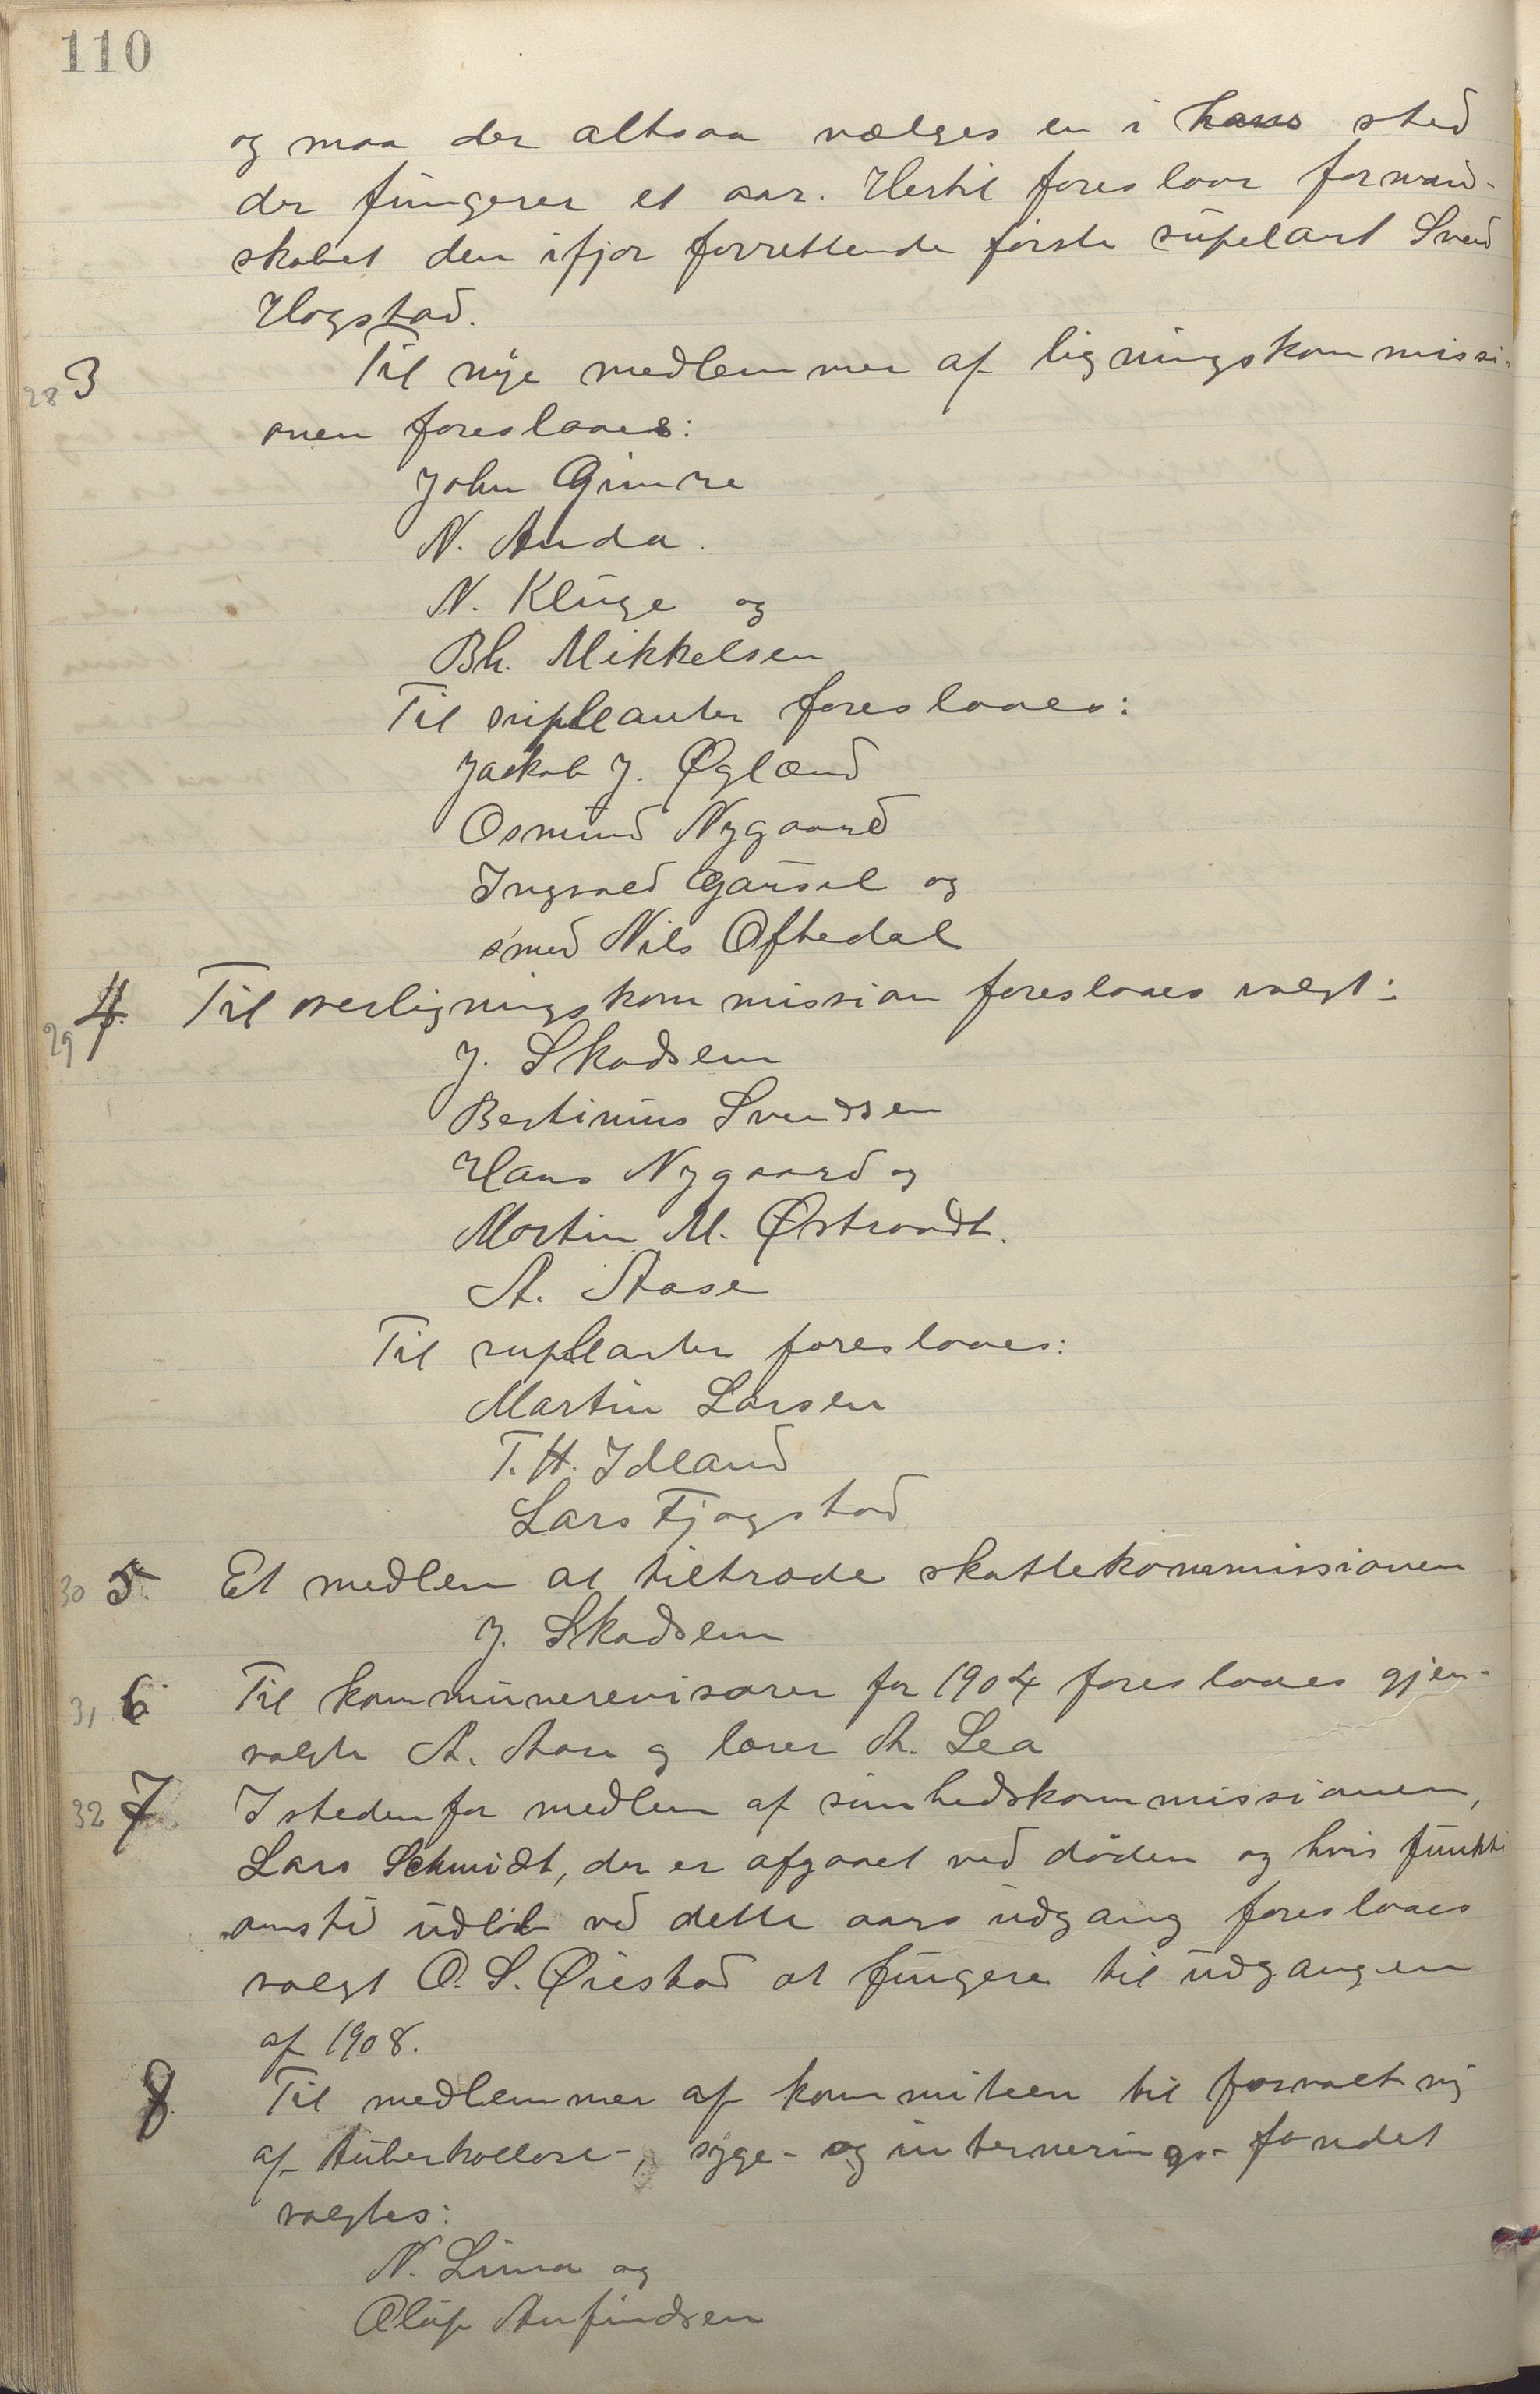 110
og maa der altsaa vælges en i hans sted
der fungerer et aar. Hertil foreslaar formand-
skabet den ifjor forrettende første supelant Svend
Hogstad.
28 3 Til nye medlemmer af ligningskommissi-
onen foreslaaes:
John Gimre
N. Anda.
N. Kluge og
Bh. Mikkelsen
Til supleanter foreslaaes:
Jackob J. Øglænd
Osmund Nygaard
Ingvald Gausel og
smed Nils Oftedal
29 4. Til overligningskommission foreslaaes valgt:
J. Skadsem
Bertinius Svendsen
Hans Nygaard og
Martin M. Østraadt.
A. Aase
Til supleanter foreslaaes:
Martin Larsen
T. H. Idland
Lars Fjogstad
30 5. Et medlem at tiltræde skattekommissionen
J. Skadsem
31 6 Til kommunerevisorer for 1904 foreslaaes gjen-
valgte A. Aase og lærer A. Lea
32 7. Istedenfor medlem af sunhedskommissionen,
Lars Schmidt, der er afgaaet ved døden og hvis funkti
onstid udløb ved dette aars udgang foreslaaes
valgt O. S. Øiestad at fungere til udgangen
af 1908.
8. Til medlemmer af kommiteen til forvaltning
af tuberkollose-, syge- og internerings-fondet
valgtes:
N. Lima og
Oluf Anfindsen